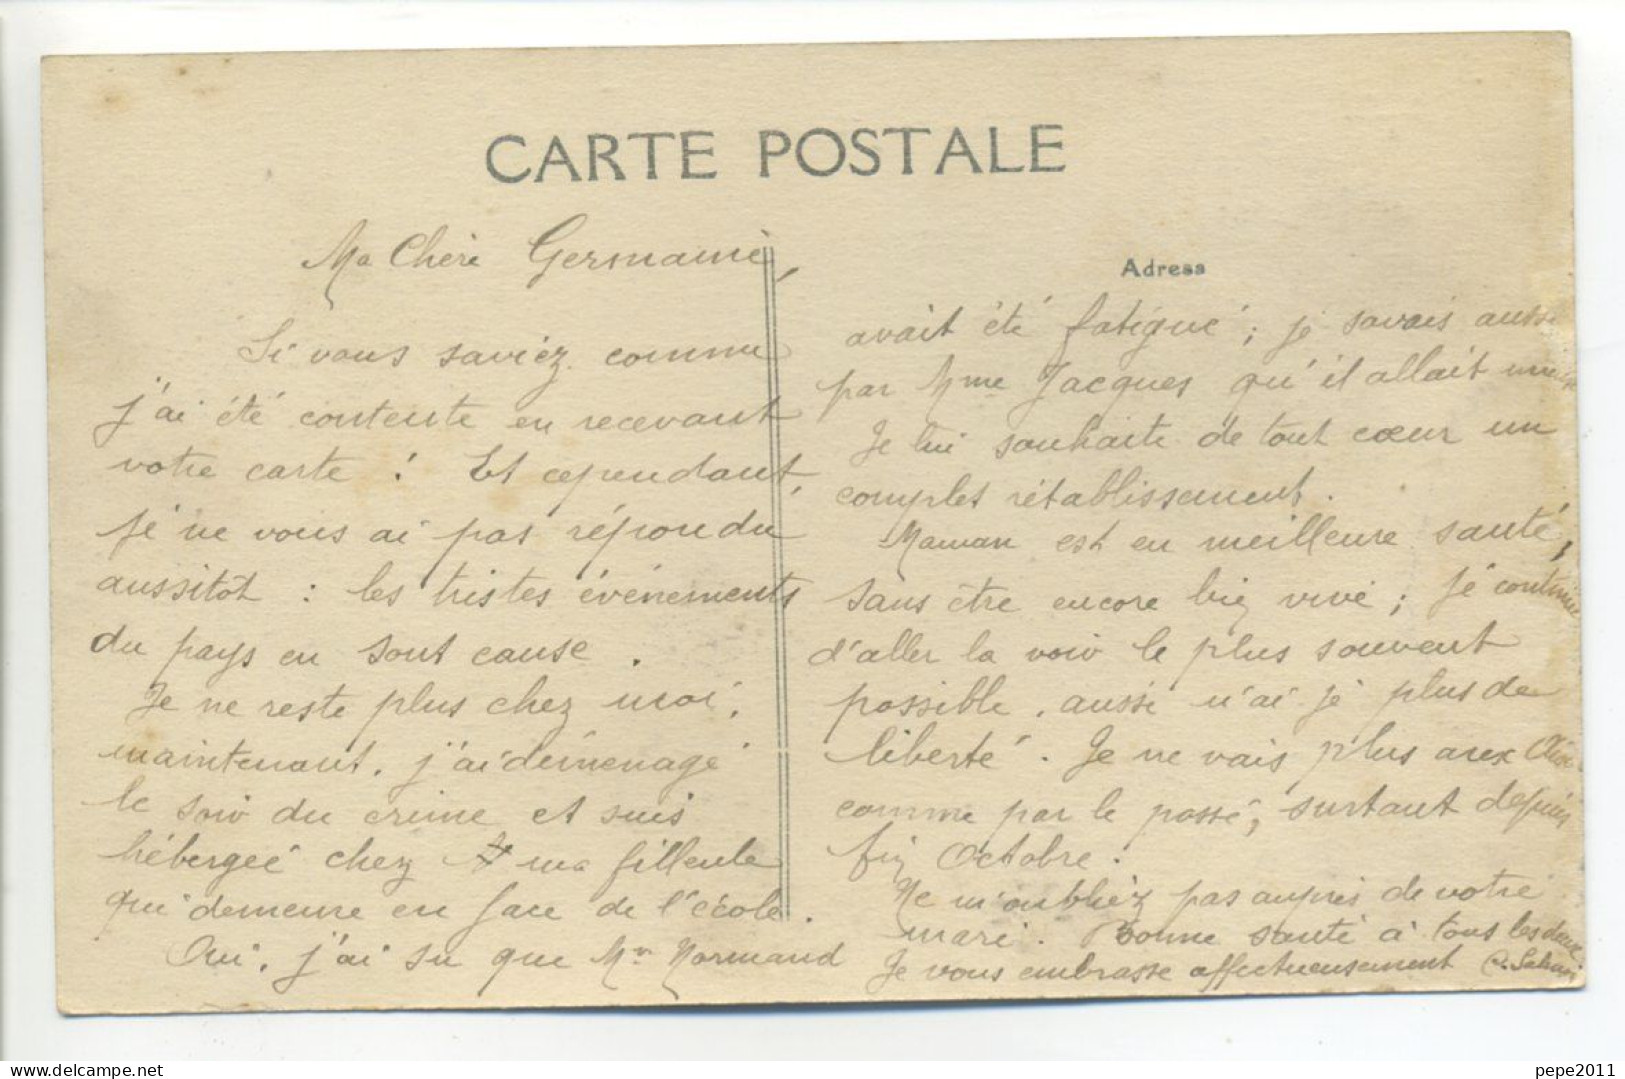 CARTE POSTALE
Ma Chère Germaine,
Si vous saviez comme
j'ai été contente en recevant
votre carte ! Et cependant,
je ne vous ai pas répondu
aussitôt : les tristes événements
du pays en sont cause.
Je ne reste plus chez moi,
maintenant, j'ai déménagé
le soir du crime et suis
hébergée chez ma filleule
qui demeure en face de l'école.
Oui, j'ai su que Mr Normand
Adresse
avait été fatigué ; je savais aussi
par Mme Jacques qu'il allait mieux
Je lui souhaite de tout cœur un
complet rétablissement.
Maman est en meilleure santé,
sans être encore bien vive ; je continue
d'aller la voir le plus souvent
possible, aussi n'ai je plus de
liberté. Je ne vais plus aux
comme par le passé, surtout depuis
fin Octobre.
Ne m'oubliez pas auprès de votre
mari. Bonne santé à tous les deux.
Je vous embrasse affectueusement
www.delcampe.net
pepe2011